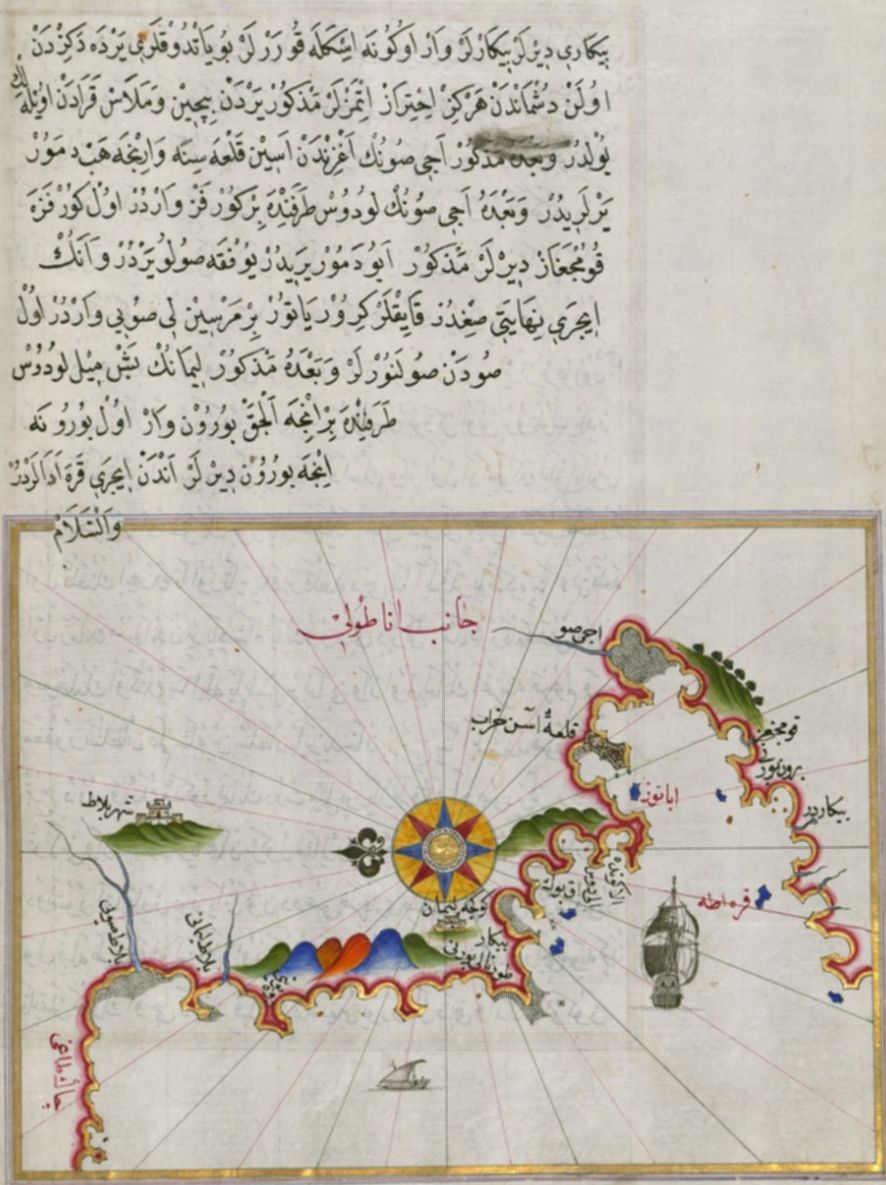 پیکاری دیرلر پیکارلر وار اول کونه اشکله قورلر بو یاتدوقلری یرده دکزدن
اولن دشماندن هرکز احتراز اتمزلر مذکور یردن پچین و ملاس قرادن اویله لك
یولدر وبعده مذکور اجی صونك اغزندن اسین قلعه سنه وارنجه هب دمور
یرلریدر وبعده اجی صونك لودوس طرفنده بر کورفز واردر اول کورفزه
قومجغاز دیرلر مذکور ایو دمور یریدر یوفقه صولو یردر وانك
ایچری نهایتی صغدر قایقلر کرور یاتور بر مرسین لی صویی واردر اول
صودن صولنورلر وبعده مذکور لیمانك بش میل لودوس
طرفنده بر انجه الجق بورون وار اول بورونه
انجه بورون دیرلر اندن ایچری قره ادالردر
والسلام
جانب اناطولی
اجی صو
قلعهٔ اسن خراب
قومجغز
برون بورنی
ابانوز
پیکاردر
شهر بلاط
قره اطه
اق بوله
کوکجه لیمان
پیکار
بلاط صویی
بلاط لیمانی